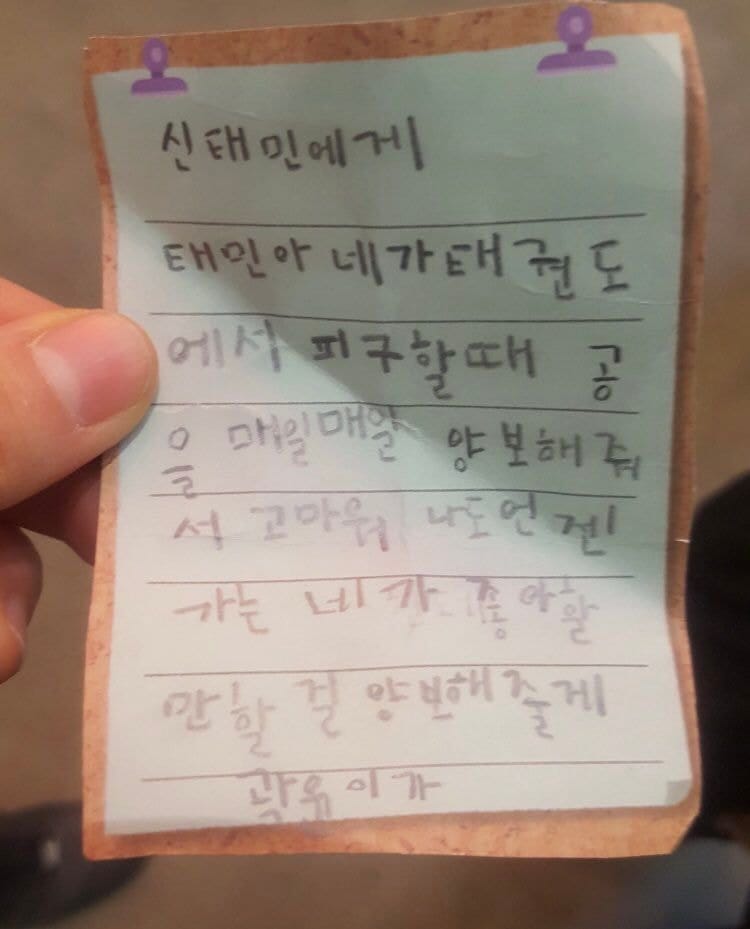 신태민에게
태민아 네가태권도
에서 피구할때 공
을 매일매일 양보해줘
서 고마워 나도언젠
가는 네가 좋아할
만할 걸 양보해줄게